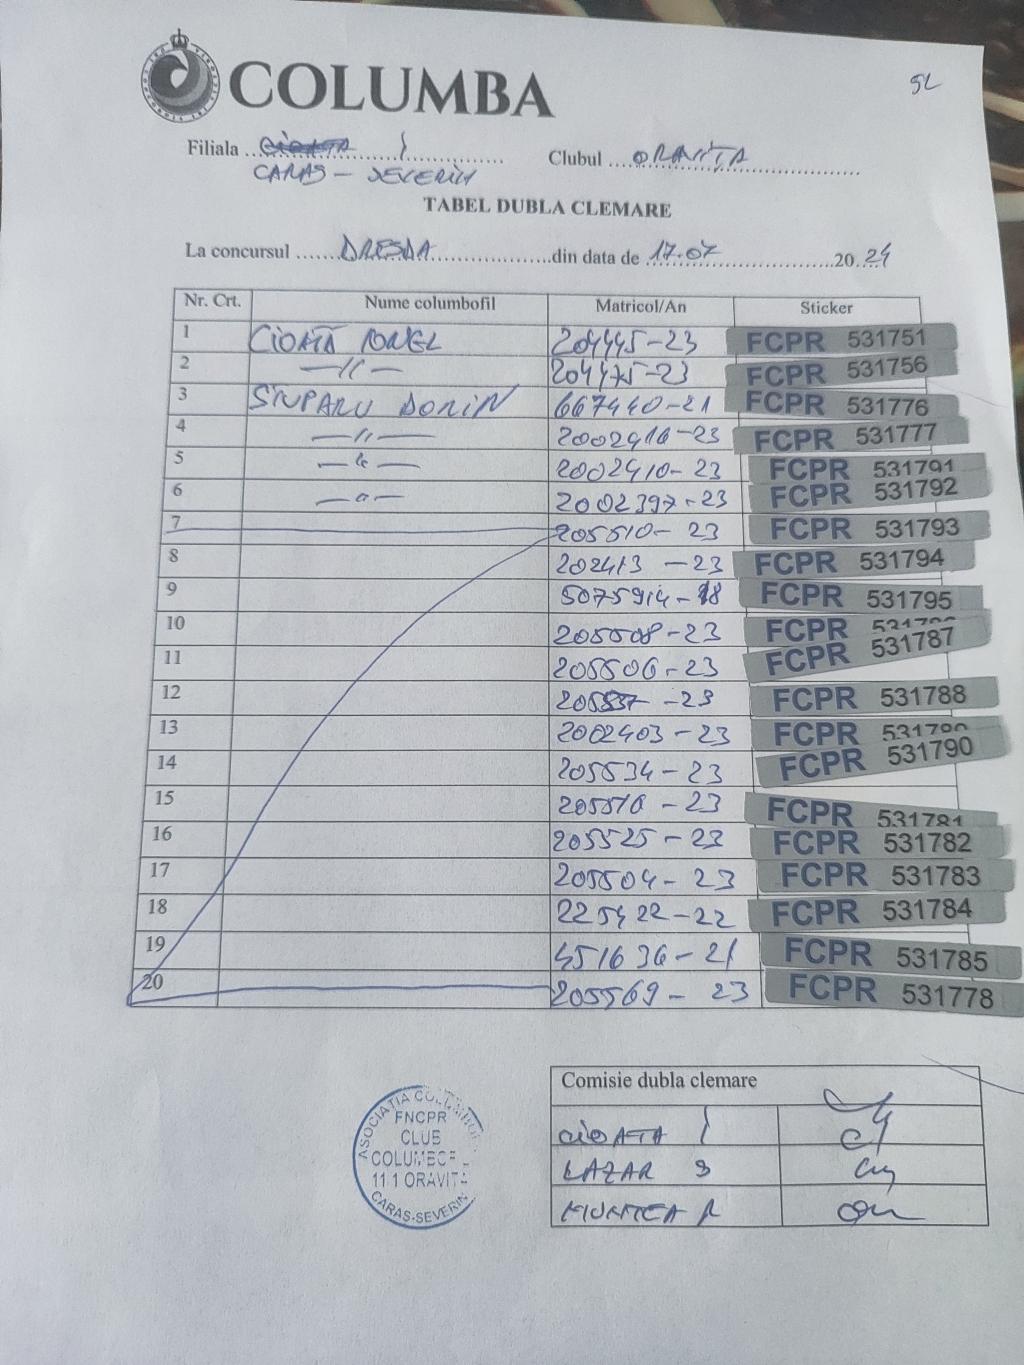 COLUMBA
52
Filiala CIOATA I Clubul ORAVIȚA
CARAS-SEVERIN
TABEL DUBLA CLEMARE
La concursul DRESDA din data de 17.07 20 24
Nr. Crt. Nume columbofil Matricol/An Sticker
1 CIOATĂ IONEL 204445-23 FCPR 531751
2 —//— 204475-23 FCPR 531756
3 STUPARU DORIN 667440-21 FCPR 531776
4 —//— 2002416-23 FCPR 531777
5 —//— 2002410-23 FCPR 531791
6 —//— 2002397-23 FCPR 531792
7 205510-23 FCPR 531793
8 202413-23 FCPR 531794
9 5075914-18 FCPR 531795
10 205508-23 FCPR
11 205506-23 FCPR 531787
12 -23 FCPR 531788
13 2002403-23 FCPR
14 205534-23 FCPR 531790
15 205516-23 FCPR 531781
16 205525-23 FCPR 531782
17 205504-23 FCPR 531783
18 225422-22 FCPR 531784
19 451636-21 FCPR 531785
20 205569-23 FCPR 531778
Comisie dubla clemare
CIOATA I
LAZAR S
MUNTEA R
ASOCIATIA
FNCPR
CLUB
111 ORAVITA
CARAS-SEVERIN